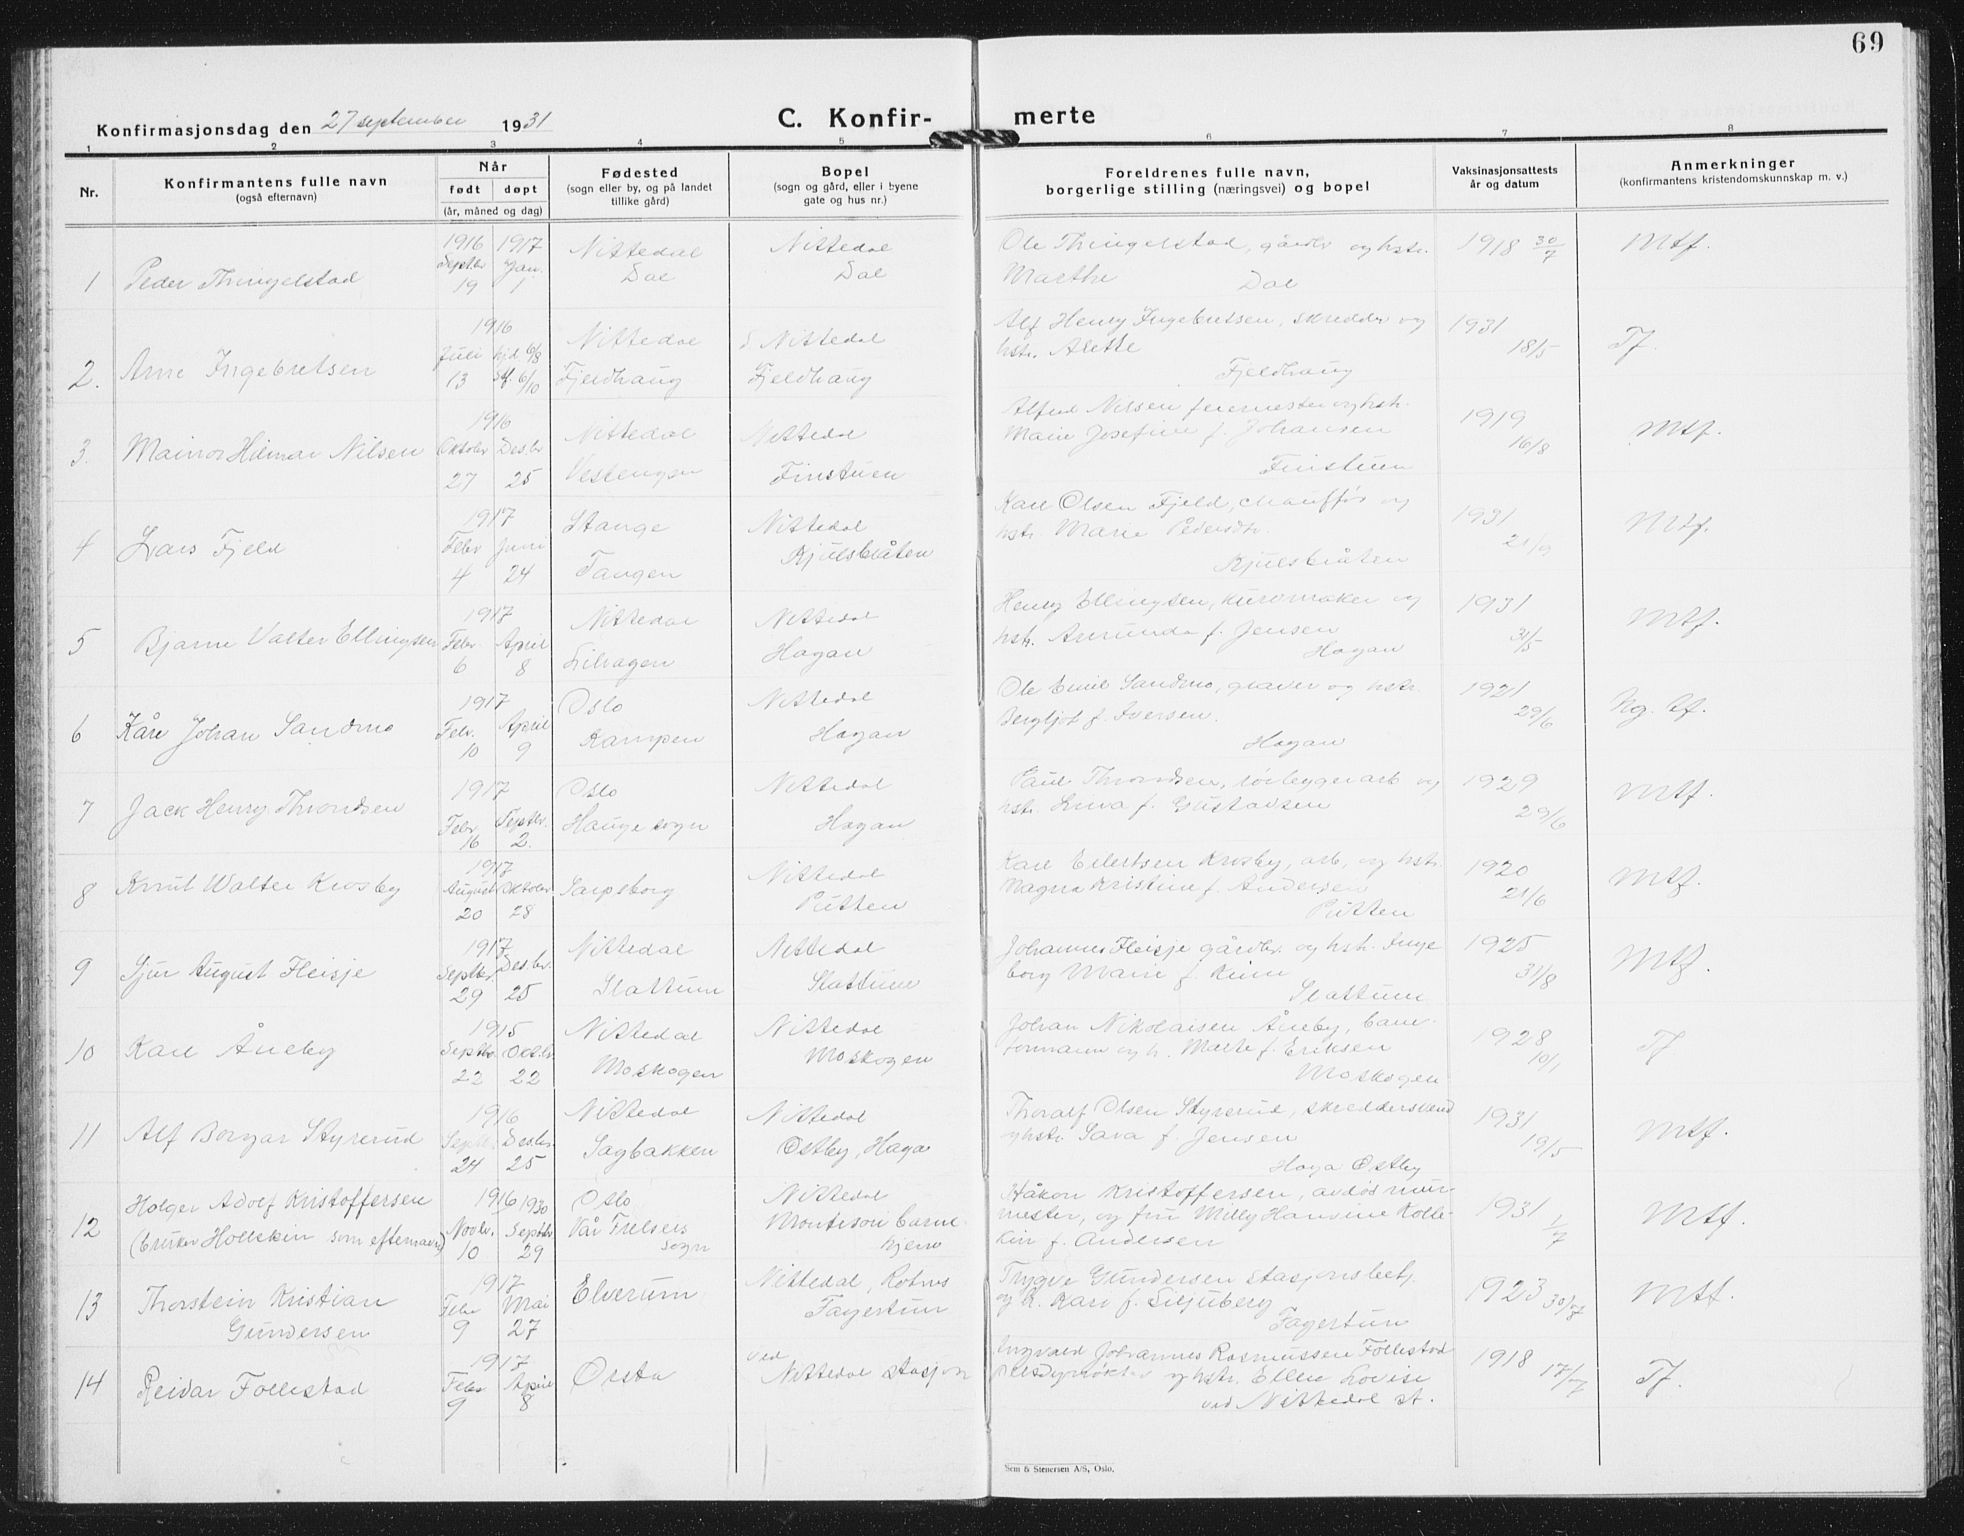 69
Konfirmasjonsdag den 27 september 1931
C. Konfir- merte
1 2 3 4 5 6 7 8
Nr.
Konfirmantens fulle navn
(også efternavn)
Når
født døpt
(år, måned og dag)
Fødested
(sogn eller by, og på landet
tillike gård)
Bopel
(sogn og gård, eller i byene
gate og hus nr.)
Foreldrenes fulle navn,
borgerlige stilling (næringsvei) og bopel
Vaksinasjonsattests
år og datum
Anmerkninger
(konfirmantens kristendomskunnskap m. v.)
1916 1917 Nittedal Nittedal Ole Thingelstad, gårdbr og hstr. 1918 30/7 Mtf.
Septbr Jan. Dal Dal Marthe Dal
1 Peder Thingelstad 19 1
1916 Nittedal Nittedal Alf Henry Ingebretsen, skredder og 1931
Juli hjd. 6/8 hstr. Alette 18/5 Tf.
2. Arne Ingebretsen 13 6/10 Fjeldhaug Fjeldhaug Fjeldhaug
1916 Nittedal Nittedal Alfred Nilsen feiermester og hstr. 1919 Mtf.
3. Mainor Hilmar Nilsen Oktobr Des.br Marie Josefine f. Johansen 16/8
27 25 Vestengen Finstuen Finstuen
1917 Stange Nittedal Karl Olsen Fjeld, chauffør og 1931 Mtf.
4 Lars Fjeld Febr Juni Kjulsbråten hstr. Marie Pedersdtr. 21/9
4 24 Tangen Kjulsbråten
1917 Nittedal Nittedal Henry Ellingsen, kurvmaker og 1931 Mtf.
5 Bjarne Valter Ellingsen Febr. April Hagan hstr. Amunda f. Jensen 31/5
6 8 Lilhagen Hagan
1917 Oslo Nittedal Ole Emil Sandmo, graver og hstr. 1921
6 Kåre Johan Sandmo Febr. April Kampen Hagan Bergljot f. Iversen. 29/6 Ng. tf.
10 9 Hagan
1917 Oslo Nittedal Paul Throndsen, arb og 1929 Mtf.
7 Jack Henry Throndsen Febr. Septbr. Hauge sogn Hagan hstr. Lina f. Gustavsen 29/6
16 2.
1917 Nittedal Karl Eilertsen Krosby, arb, og hstr. 1920 Mtf.
8 Knut Walter Krosby August Oktobr Sarpsborg Putten Magna Kristine f. Andersen 21/6
20 28 Putten
1917 Nittedal Nittedal Johannes Fleisje gårdbr. og hstr. Inge 1925 Mtf.
9 Sjur August Fleisje Septbr. Des.br. borg Marie f. 31/8
29 25 Slattum Slattum Slattum
1915 Nittedal Nittedal Johan Nikolaisen Åneby, bane- 1928 Tf
10 Karl Åneby Septbr. Okt.br. formann og h. Marte f. Eriksen 10/1
22 22 Moskogen Moskogen Moskogen
1916 Nittedal Nittedal Thoralf Olsen Styrerud, skreddersvend 1931 Mtf.
11 Alf Borgar Styrerud Septbr. Des.br. Østby, Haga og hstr. Sara f. Jensen 19/5
24 25 Sagbakken Haga Østby
Holger Adolf Kristoffersen 1916 1930 Oslo Nittedal Håkon Kristoffersen, avdød mur- 1931 1/7 Mtf.
12 (bruker Hollekin som efternavn) Novbr. Septbr Vår Frelsers Montesori barne mester, og fru Milly Hansine Kolle-
10 29 sogn hjem kin f. Andersen
1917 Nittedal, Rotnes Trygve Gundersen stasjonsbetj.
13 Thorstein Kristian Febr Mai Elverum Fagertun og h. Kari f. Liljuberg 1923 30/7 Mtf.
Gundersen 9 27 Fagertun
1917 ved Ingvald Johannes Rasmussen Follestad 1918 17/7 Tf.
14 Reidar Follestad Febr April Ørsta Nittedal stasjon og hstr. Ellen Lovise
9 8 ved Nittedal st.
Sem & Stenersen A/S, Oslo.